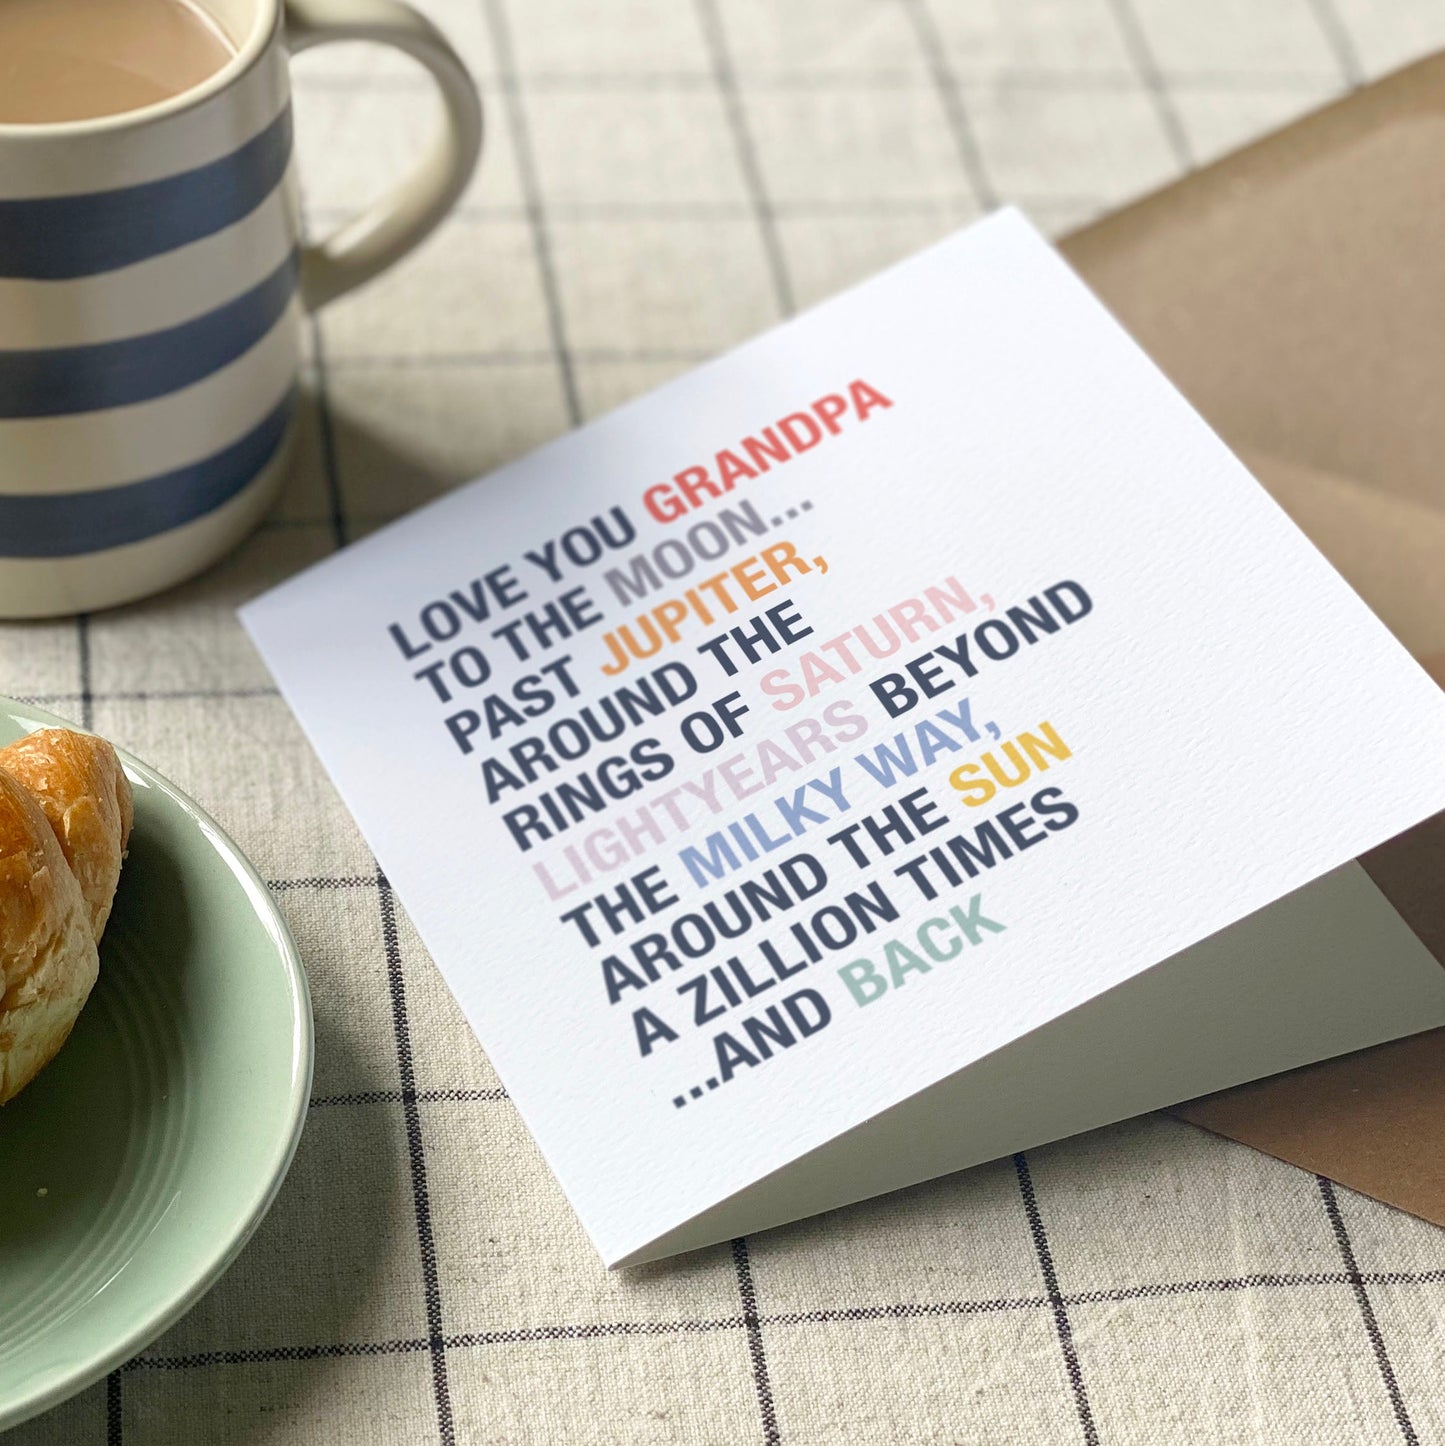 LOVE YOU GRANDPA
TO THE MOON...
PAST JUPITER,
AROUND THE
RINGS OF SATURN,
LIGHTYEARS BEYOND
THE MILKY WAY,
AROUND THE SUN
A ZILLION TIMES
...AND BACK